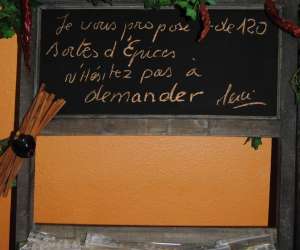 Je vous propose + de 120
sortes d'Épices
n'hésitez pas à
demander Merci